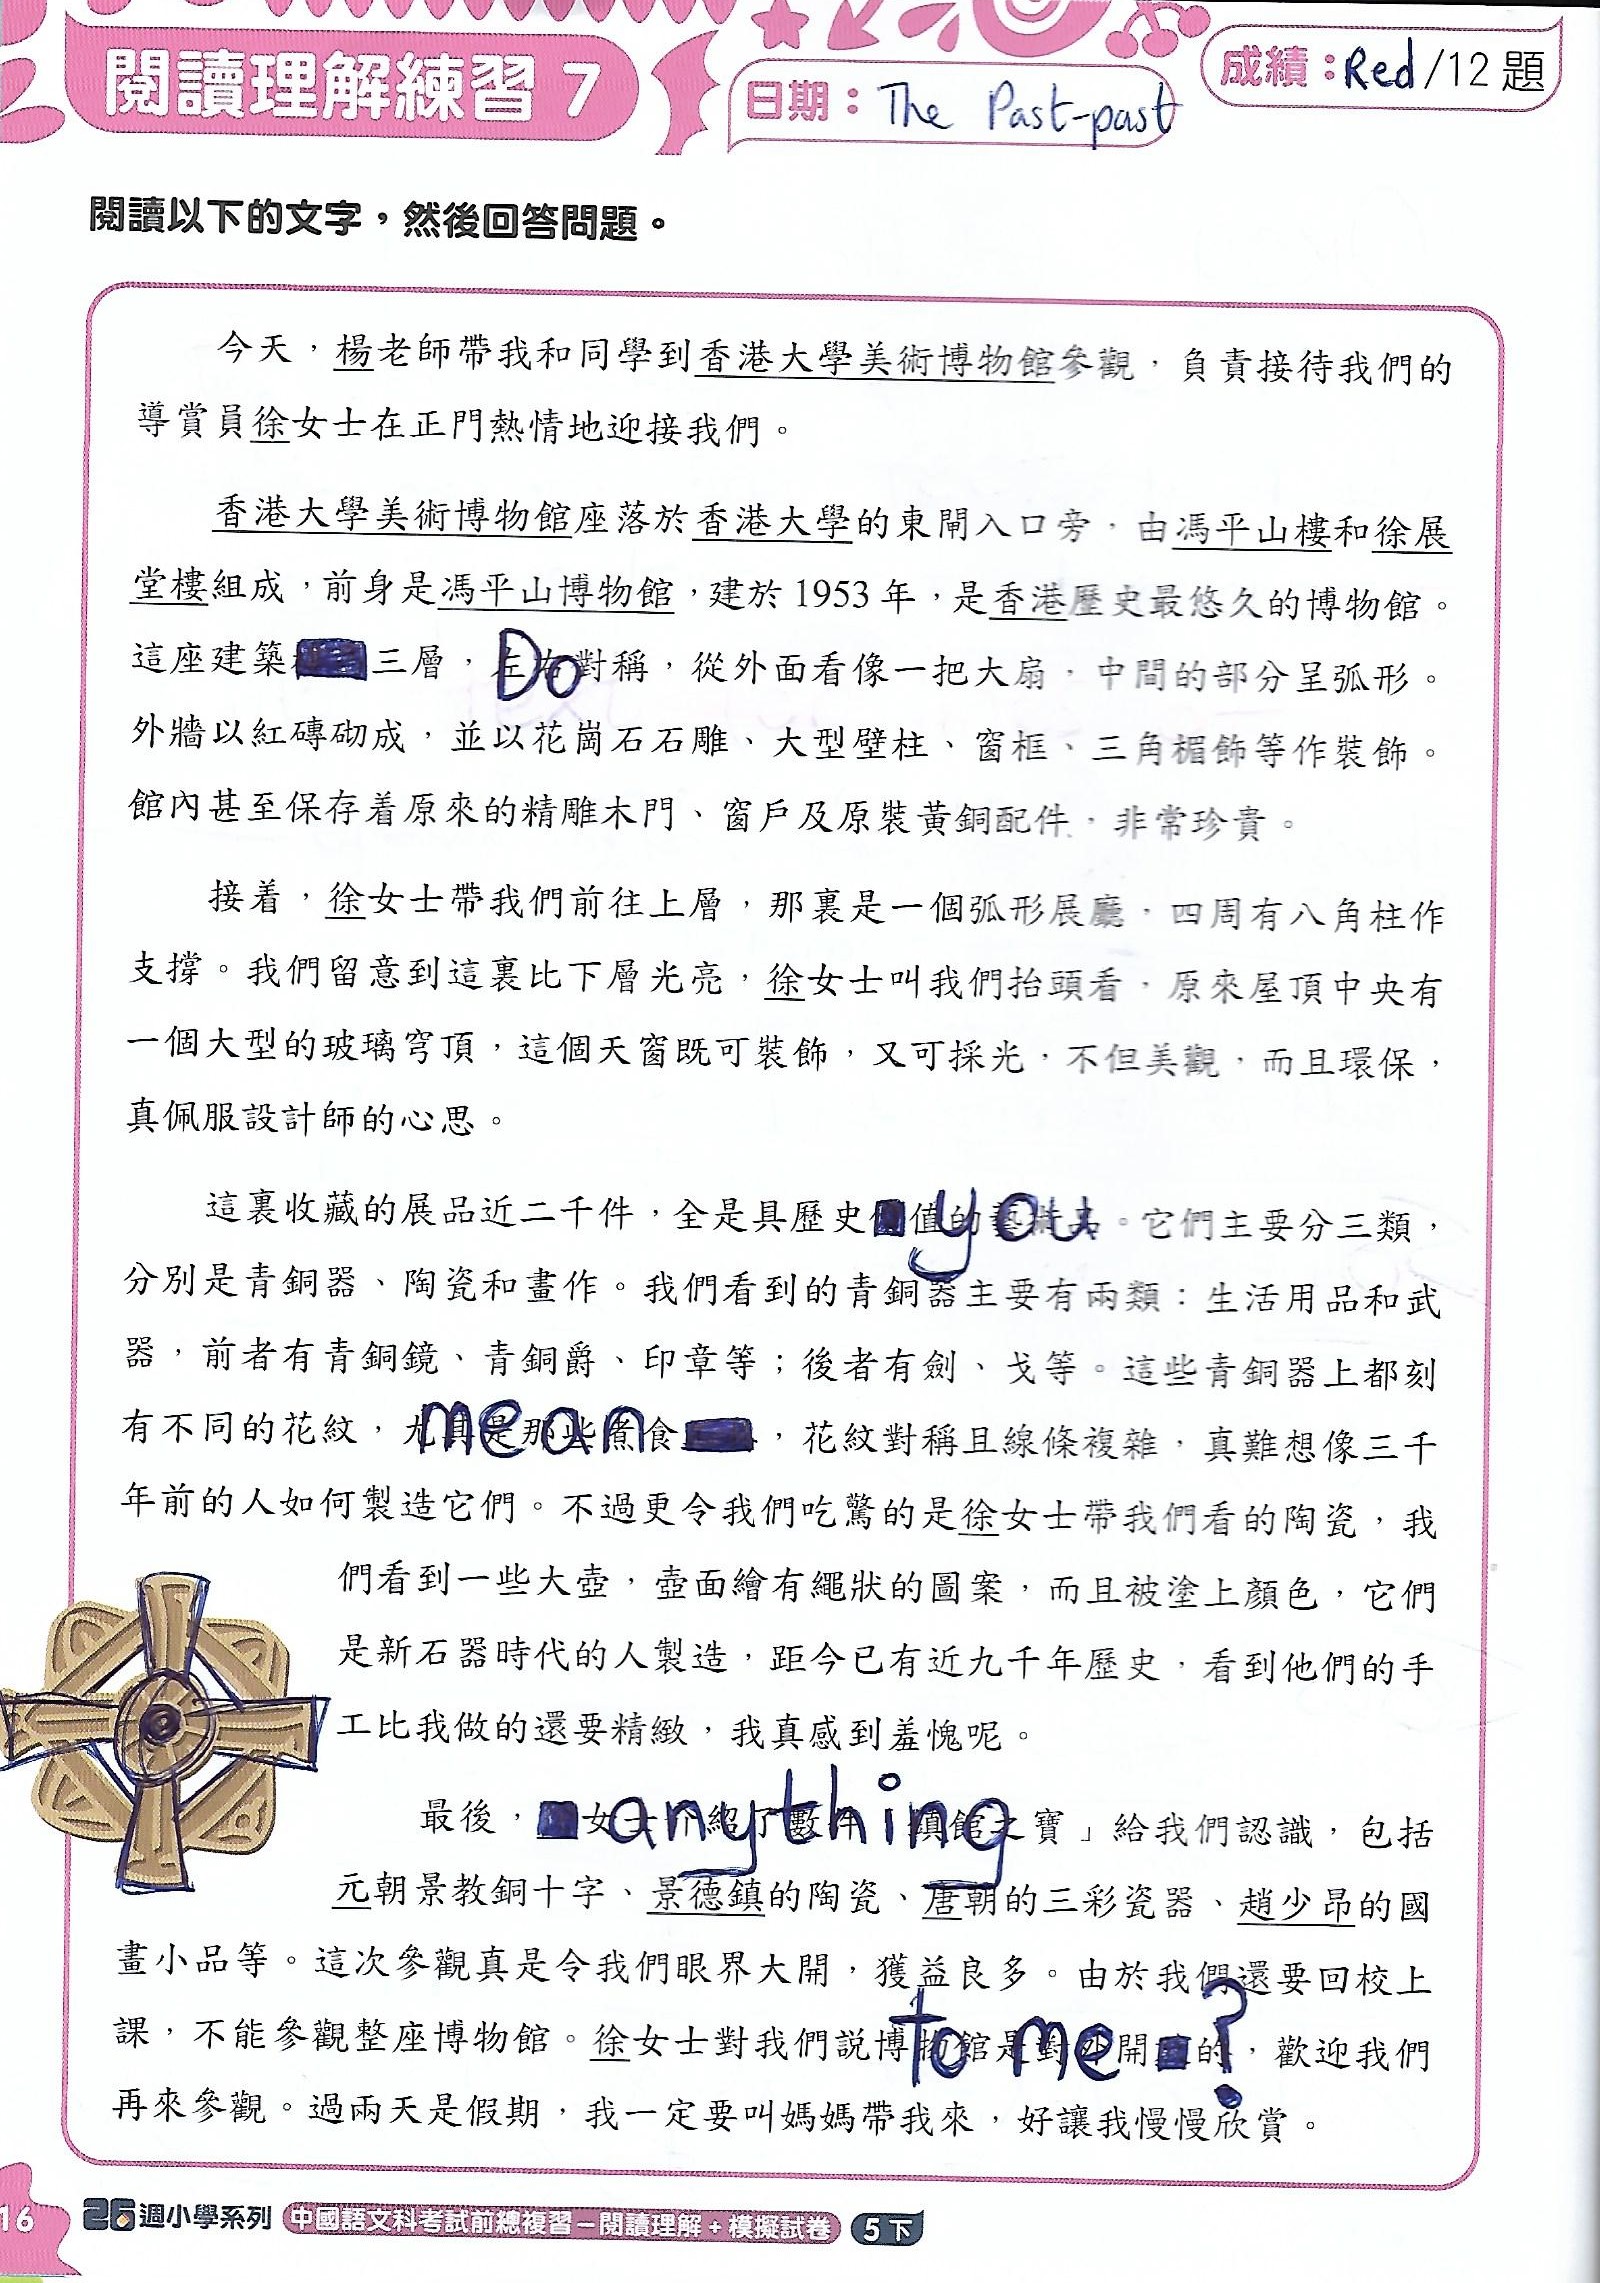 閱讀理解練習 7
日期：The Past-past
成績：Red/12 題
閱讀以下的文字，然後回答問題。
今天，楊老師帶我和同學到香港大學美術博物館參觀，負責接待我們的
導賞員徐女士在正門熱情地迎接我們。
香港大學美術博物館座落於香港大學的東閘入口旁，由馮平山樓和徐展
堂樓組成，前身是馮平山博物館，建於 1953 年，是香港歷史最悠久的博物館。
這座建築三層，對稱，從外面看像一把大扇，中間的部分呈弧形。
Do
外牆以紅磚砌成，並以花崗石石雕、大型壁柱、窗框、三角楣飾等作裝飾。
館內甚至保存着原來的精雕木門、窗戶及原裝黃銅配件，非常珍貴。
接着，徐女士帶我們前往上層，那裏是一個弧形展廳，四周有八角柱作
支撐。我們留意到這裏比下層光亮，徐女士叫我們抬頭看，原來屋頂中央有
一個大型的玻璃穹頂，這個天窗既可裝飾，又可採光，不但美觀，而且環保，
真佩服設計師的心思。
這裏收藏的展品近二千件，全是具歷史值的藝術品。它們主要分三類，
you
分別是青銅器、陶瓷和畫作。我們看到的青銅器主要有兩類：生活用品和武
器，前者有青銅鏡、青銅爵、印章等；後者有劍、戈等。這些青銅器上都刻
有不同的花紋，尤其是那些煮食，花紋對稱且線條複雜，真難想像三千
mean
年前的人如何製造它們。不過更令我們吃驚的是徐女士帶我們看的陶瓷，我
們看到一些大壺，壺面繪有繩狀的圖案，而且被塗上顏色，它們
是新石器時代的人製造，距今已有近九千年歷史，看到他們的手
工比我做的還要精緻，我真感到羞愧呢。
最後，女士介紹了數件「鎮館之寶」給我們認識，包括
anything
元朝景教銅十字、景德鎮的陶瓷、唐朝的三彩瓷器、趙少昂的國
畫小品等。這次參觀真是令我們眼界大開，獲益良多。由於我們還要回校上
課，不能參觀整座博物館。徐女士對我們說博物館是對外開的，歡迎我們
to me ?
再來參觀。過兩天是假期，我一定要叫媽媽帶我來，好讓我慢慢欣賞。
16
26週小學系列 中國語文科考試前總複習－閱讀理解＋模擬試卷 5下